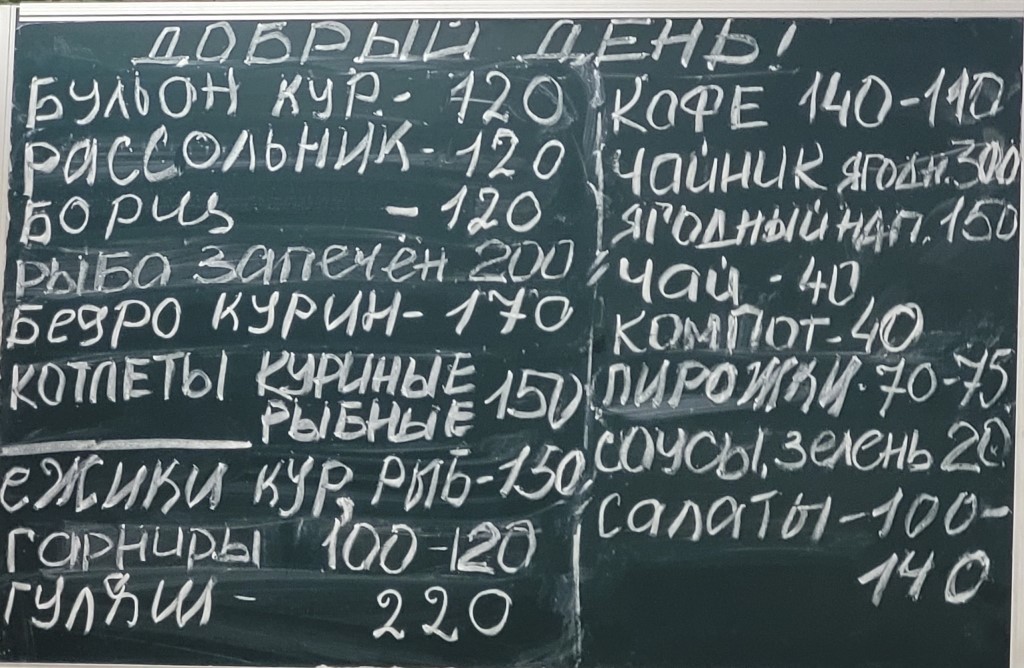 ДОБРЫЙ ДЕНЬ!
БУЛЬОН КУР.- 120
РАССОЛЬНИК- 120
БОРЩ - 120
РЫБА ЗАПЕЧЁН 200
БЕДРО КУРИН- 170
КОТЛЕТЫ КУРИНЫЕ 150
РЫБНЫЕ
ЕЖИКИ КУР, РЫБ-150
ГАРНИРЫ 100-120
ГУЛЯШ - 220
КОФЕ 140-110
ЧАЙНИК ЯГОДН.300
ЯГОДНЫЙ НАП. 150
ЧАЙ - 40
КОМПОТ-40
ПИРОЖКИ-70-75
СОУСЫ, ЗЕЛЕНЬ 20
САЛАТЫ-100-
140